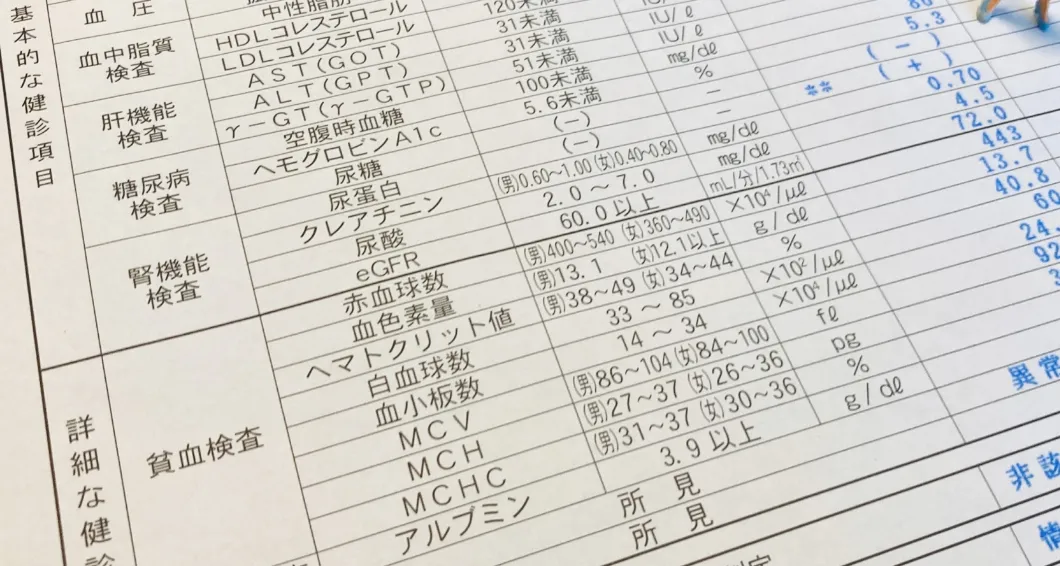 基本的な健診項目
血圧
血中脂質検査
中性脂肪
HDLコレステロール 120未満
LDLコレステロール 31未満 IU/ℓ
AST(GOT) 31未満 IU/ℓ
肝機能検査
ALT(GPT) 51未満 mg/dℓ
γ-GT(γ-GTP) 100未満 % 5.3
空腹時血糖 5.6未満 － (－)
糖尿病検査
ヘモグロビンA1c (－) － ** (＋)
尿糖 (－) mg/dℓ 0.70
尿蛋白 (男)0.60～1.00(女)0.40～0.80 mg/dℓ 4.5
腎機能検査
クレアチニン 2.0～7.0 mL/分/1.73㎡ 72.0
尿酸 60.0以上 ×10⁴/μℓ 443
eGFR (男)400～540 (女)360～490 g/dℓ 13.7
詳細な健診
貧血検査
赤血球数 (男)13.1 (女)12.1以上 % 40.8
血色素量 (男)38～49 (女)34～44 ×10²/μℓ 60
ヘマトクリット値 33～85 ×10⁴/μℓ 24.
白血球数 14～34 fℓ 92
血小板数 (男)86～104(女)84～100 pg
MCV (男)27～37 (女)26～36 %
MCH (男)31～37 (女)30～36 g/dℓ
MCHC 3.9以上 異常
アルブミン 所見
所見 非該
情